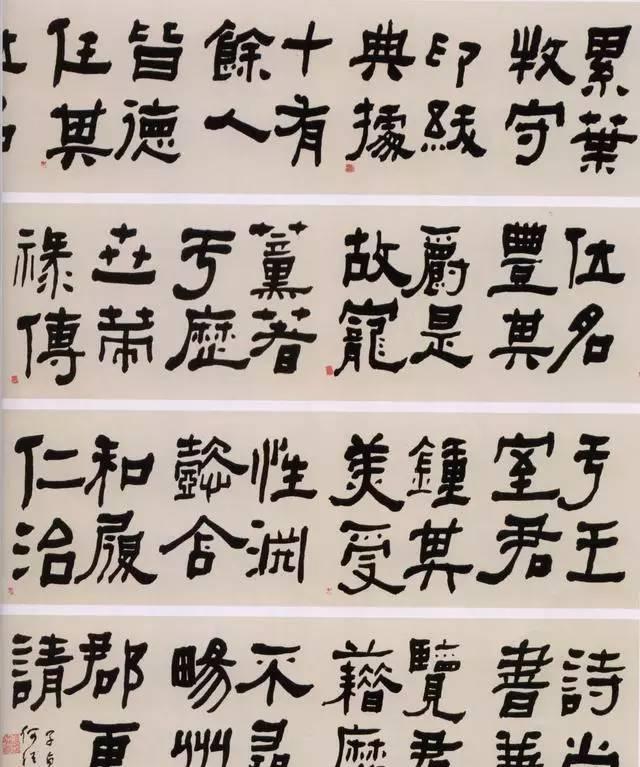 累葉
牧守
印紱
典據
十有
餘人
皆德
任其
位名
豐其
爵是
故寵
薰著
于歷
世策
祿傳
于王
室君
鍾其
美受
性渊
懿含
和履
仁治
詩尚
書兼
覽群
藉靡
不尋
畼州
郡更
請
子貞
何